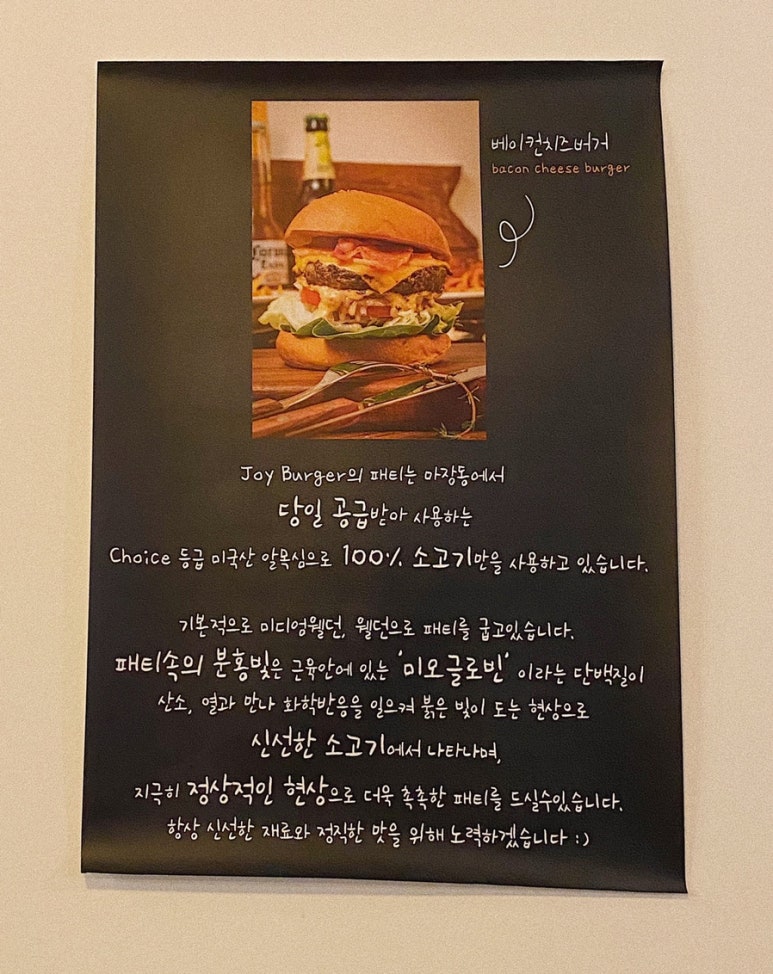 베이컨치즈버거
bacon cheese burger
Joy Burger의 패티는 마장동에서
당일 공급받아 사용하는
Choice 등급 미국산 알목심으로 100% 소고기만을 사용하고 있습니다.
기본적으로 미디엄웰던, 웰던으로 패티를 굽고있습니다.
패티속의 분홍빛은 근육안에 있는 '미오글로빈' 이라는 단백질이
산소, 열과 만나 화학반응을 일으켜 붉은 빛이 도는 현상으로
신선한 소고기에서 나타나며,
지극히 정상적인 현상으로 더욱 촉촉한 패티를 드실수있습니다.
항상 신선한 재료와 정직한 맛을 위해 노력하겠습니다 :)